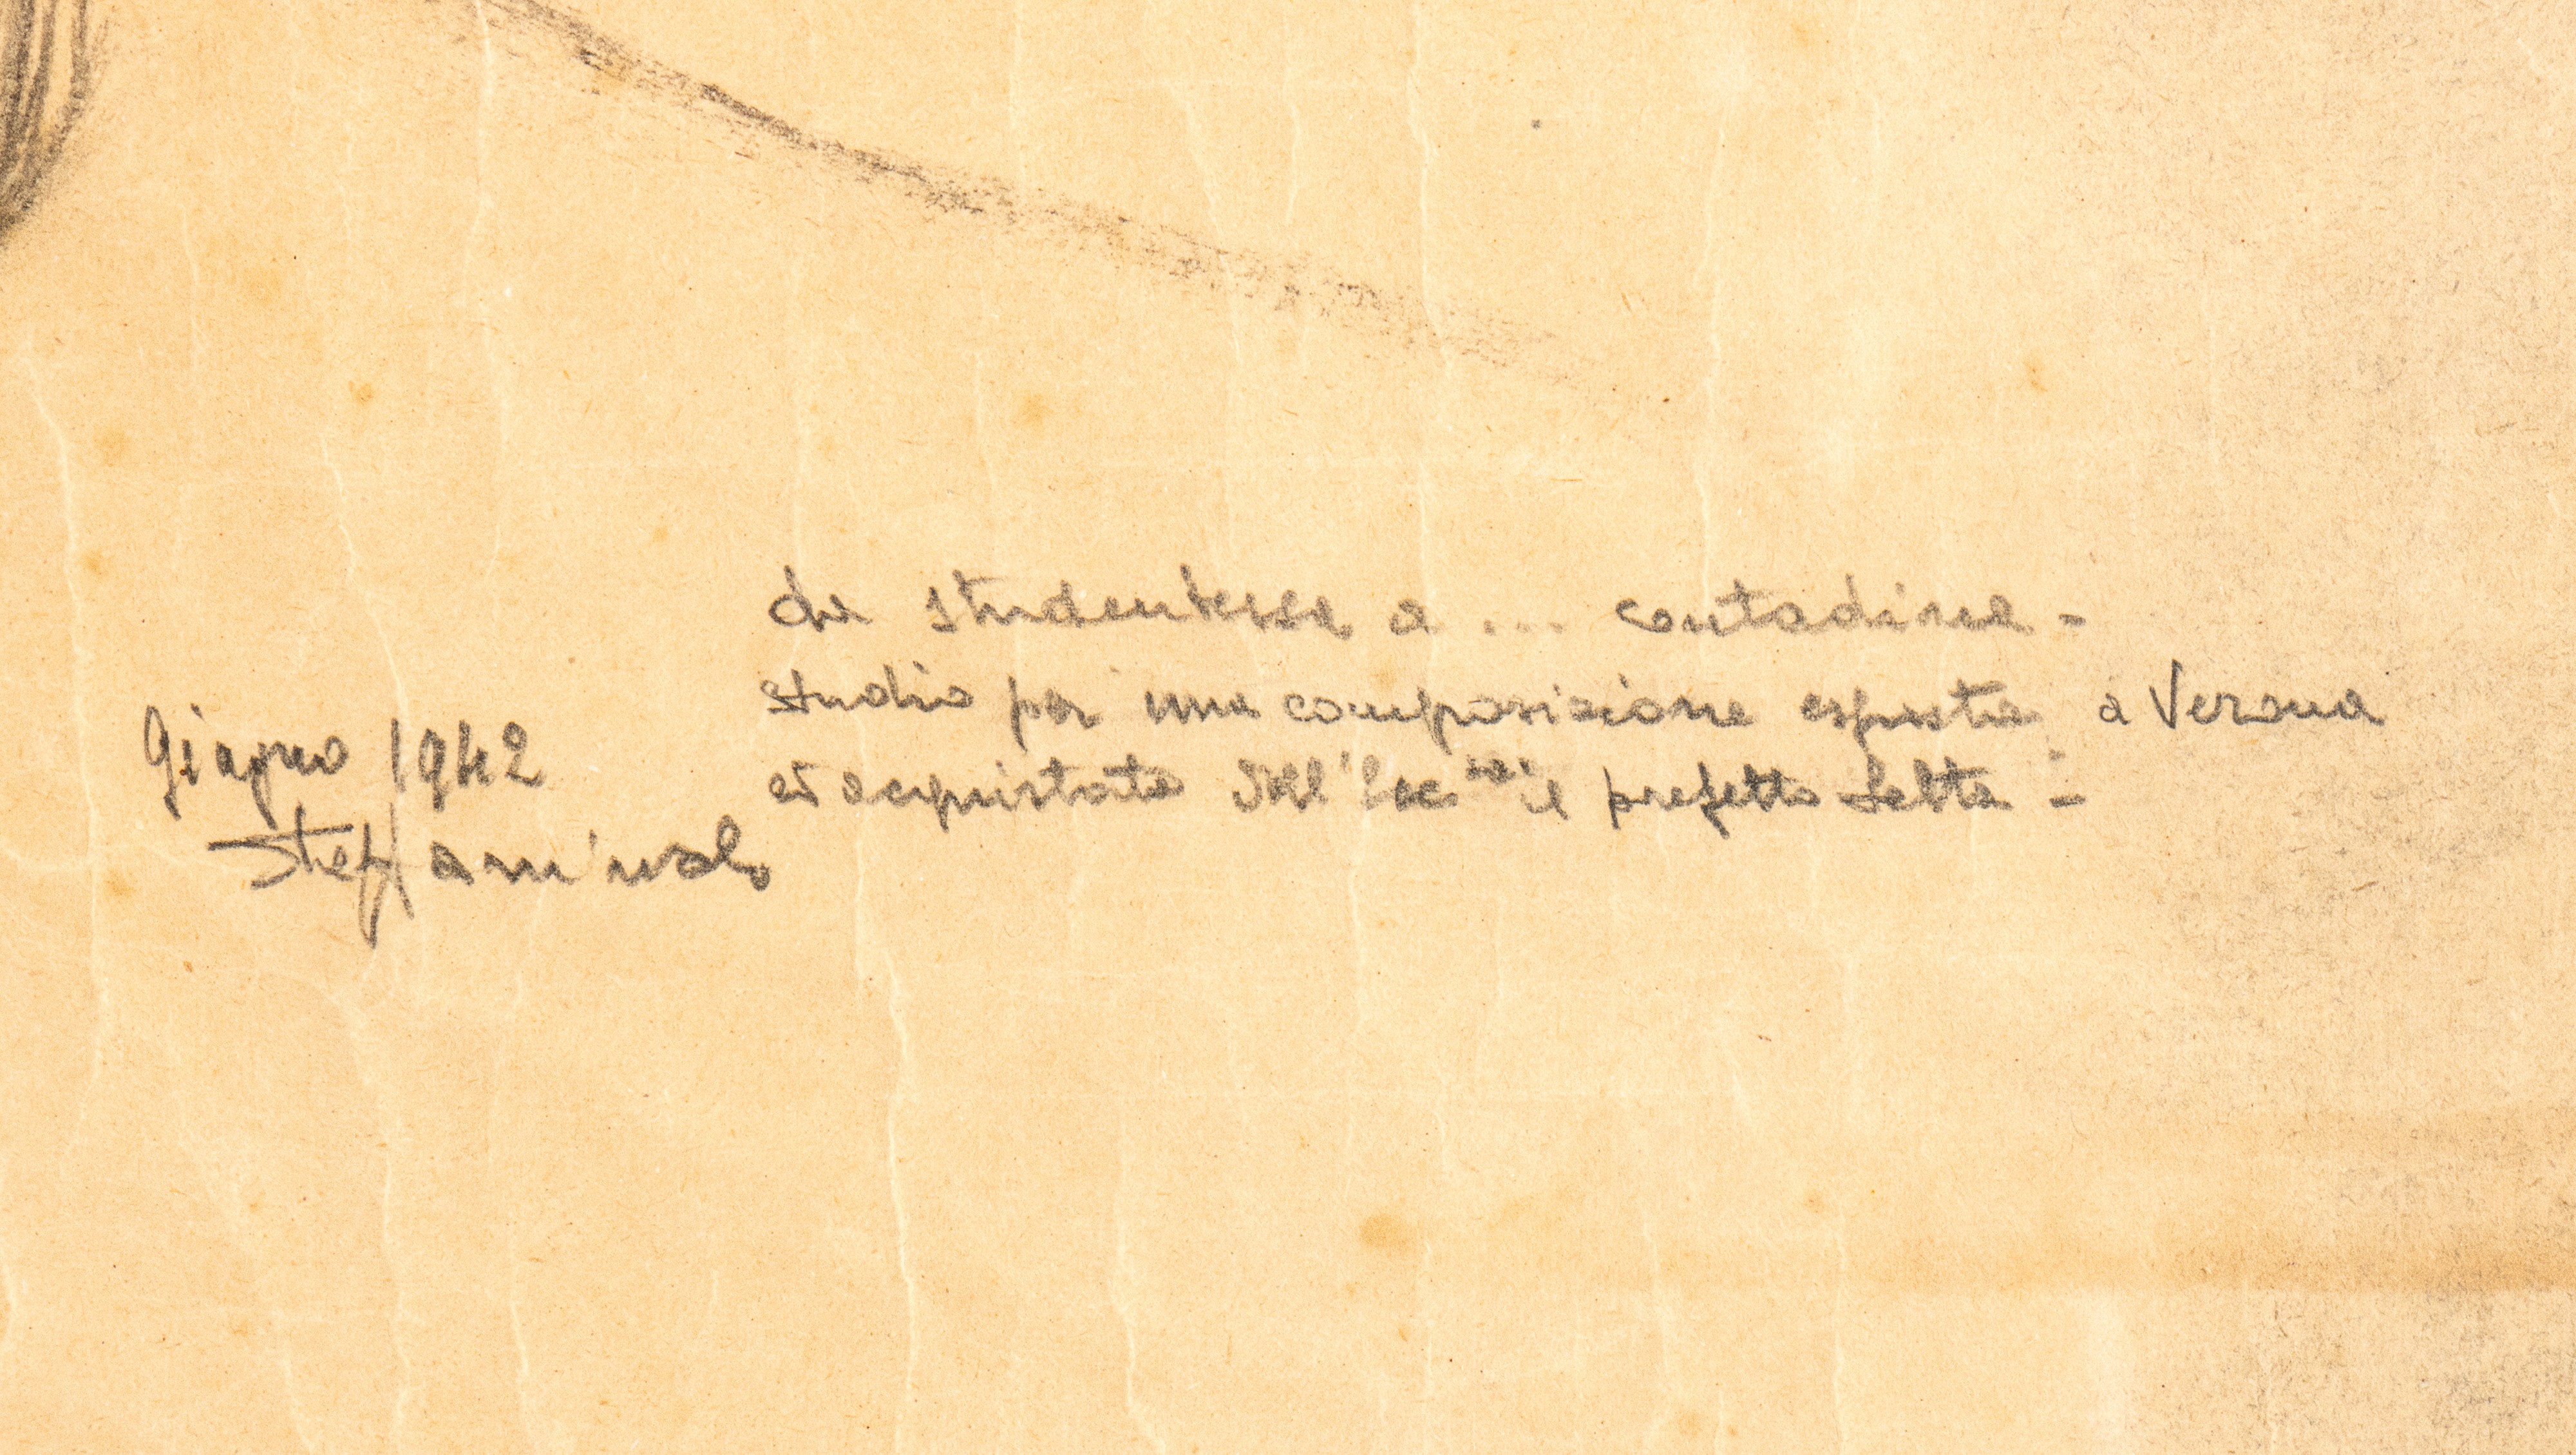 da studentessa a ... contadina -
studio per una composizione esposta a Verona
ed acquistata dall' il prefetto
Giugno 1942
Steffanivalo